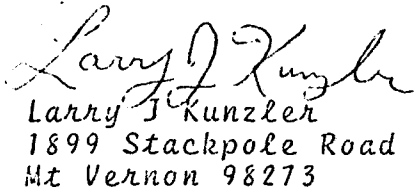 Larry J Kunzler
Larry J Kunzler
1899 Stackpole Road
Mt Vernon 98273